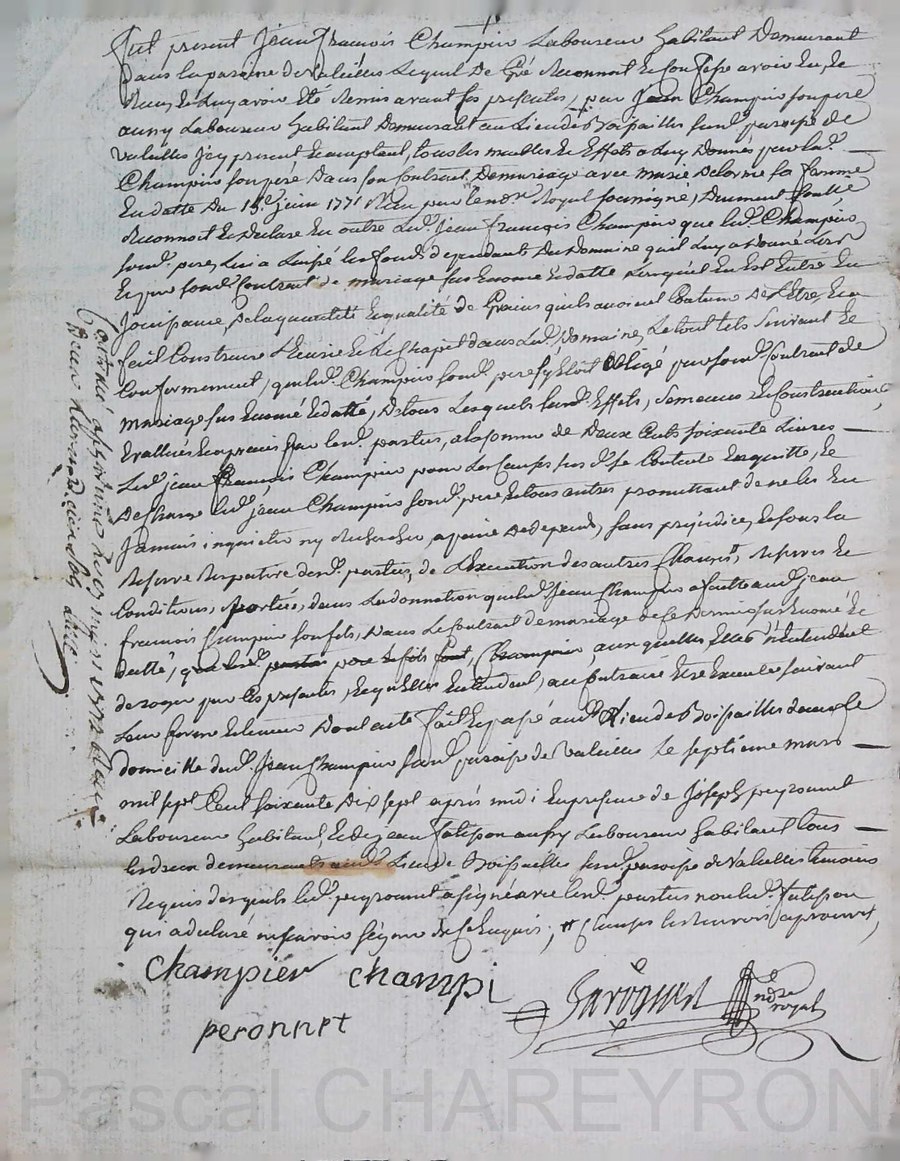 Fut present Jean François Champier Laboureur habitant Demeurant
dans la paroisse de Valeilles Lequel De Gré Reconnoit et Confesse avoir Eu, et
Reçu, et Luy avoir Eté Remis avant ses presentes, par Jean Champier son pere
aussy Laboureur habitant Demeurant au Lieu de Boisailles susd. paroisse de
Valeilles Icy present et acceptant, tous les meubles et Effets a Luy Donnés par led.
Champier son peré Dans son Contrat De mariage avec marie Delorme sa femme
En datte Du 15e. juin 1771 Reçu par le no.re Royal soussigné, Dûment Controllé
Reconnoit et Declare En outre Led. Jean François Champier que led. Champier
sond. pere, Lui a Laissé les fonds dependants Du Domaine qu'il Luy a Donné Lors
En son sond. Contrat de mariage sus Enoncé et datté Desquels Il est Entré En
Jouissance, De la quantité et qualité de Grains qu'ils avoient Coutume De L'Etre, et a
fait Construire L'Ecurie et Le Chapit dans led. Domaine, Le tout tels suivant et
Conformement, que led. Champier sond. pere s'y Etoit Obligé par sond. Contrat de
mariage sus Enoncé et datté, De tous Lesquels susd. Effets, semences et Constructions
Evalués Et apretiés par lesd. parties, a la somme de Deux Cents soixante Livres
Led. jean François Champier pour Les Causes sus d. se Contente En quitte, et
Decharge led. jean Champier sond. pere et tous autres promettant de ne les En
Jamais inquieter ny Rechercher, a peine De depens, sans prejudice, et sous la
Reserve Respective desd. parties, de L'Execution des autres Charges, Reserves et
Conditions, portées, dans La donnation que led. Jean Champier a faitte aud. jean
francois Champier son fils, Dans Le Contrat de mariage de ce Dernier sus Enoncé et
datté, que lesd. Champier auxquelles Elles n'Entendent
deroger par Ces presentes, Et qu'Elles Entendent, au Contraire Etre Executé suivant
Leur forme et teneur Dont acte fait Et passé aud. Lieu de Boisailles dans le
domicille dud. Jean Champier susd. paroisse de Valeilles Le septieme mars
mil sept Cent soixante Dix sept après midi En presence de Joseph peyronnet
Laboureur habitant, et de jean aussy Laboureur habitant tous
Les deux demeurants aud. Lieu de Boisailles susd. paroisse de Valeilles temoins
Requis desquels led. peyronnet a signé avec lesd. parties non led.
qui a declaré ne savoir signer de ce Enquis,
Champier champi
peronnet
no.re royal
Pascal CHAREYRON